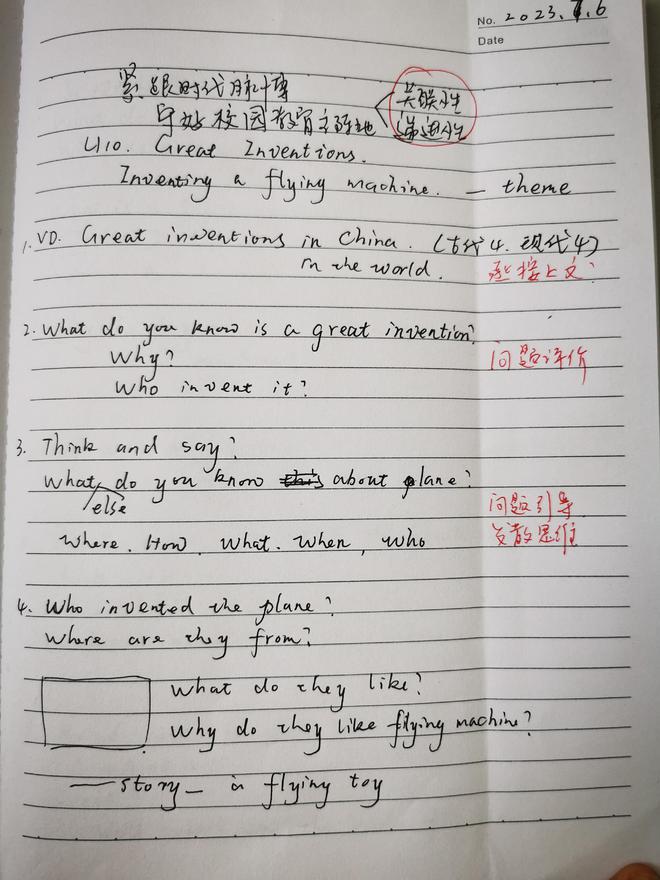 No. 2023.7.6
Date
紧跟时代脉搏
守好校园教育主阵地
关联性
递进性
U10. Great Inventions.
Inventing a flying machine. — theme
1. VD. Great inventions in China. (古代4. 现代4)
in the world.
承接上文
2. What do you know is a great invention?
Why?
问题评价
Who invent it?
3. Think and say?
What do you know this about plane?
else
问题引导
Where. How. What. When, Who
发散思维
4. Who invented the plane?
Where are they from?
What do they like?
Why do they like flying machine?
— story — a flying toy